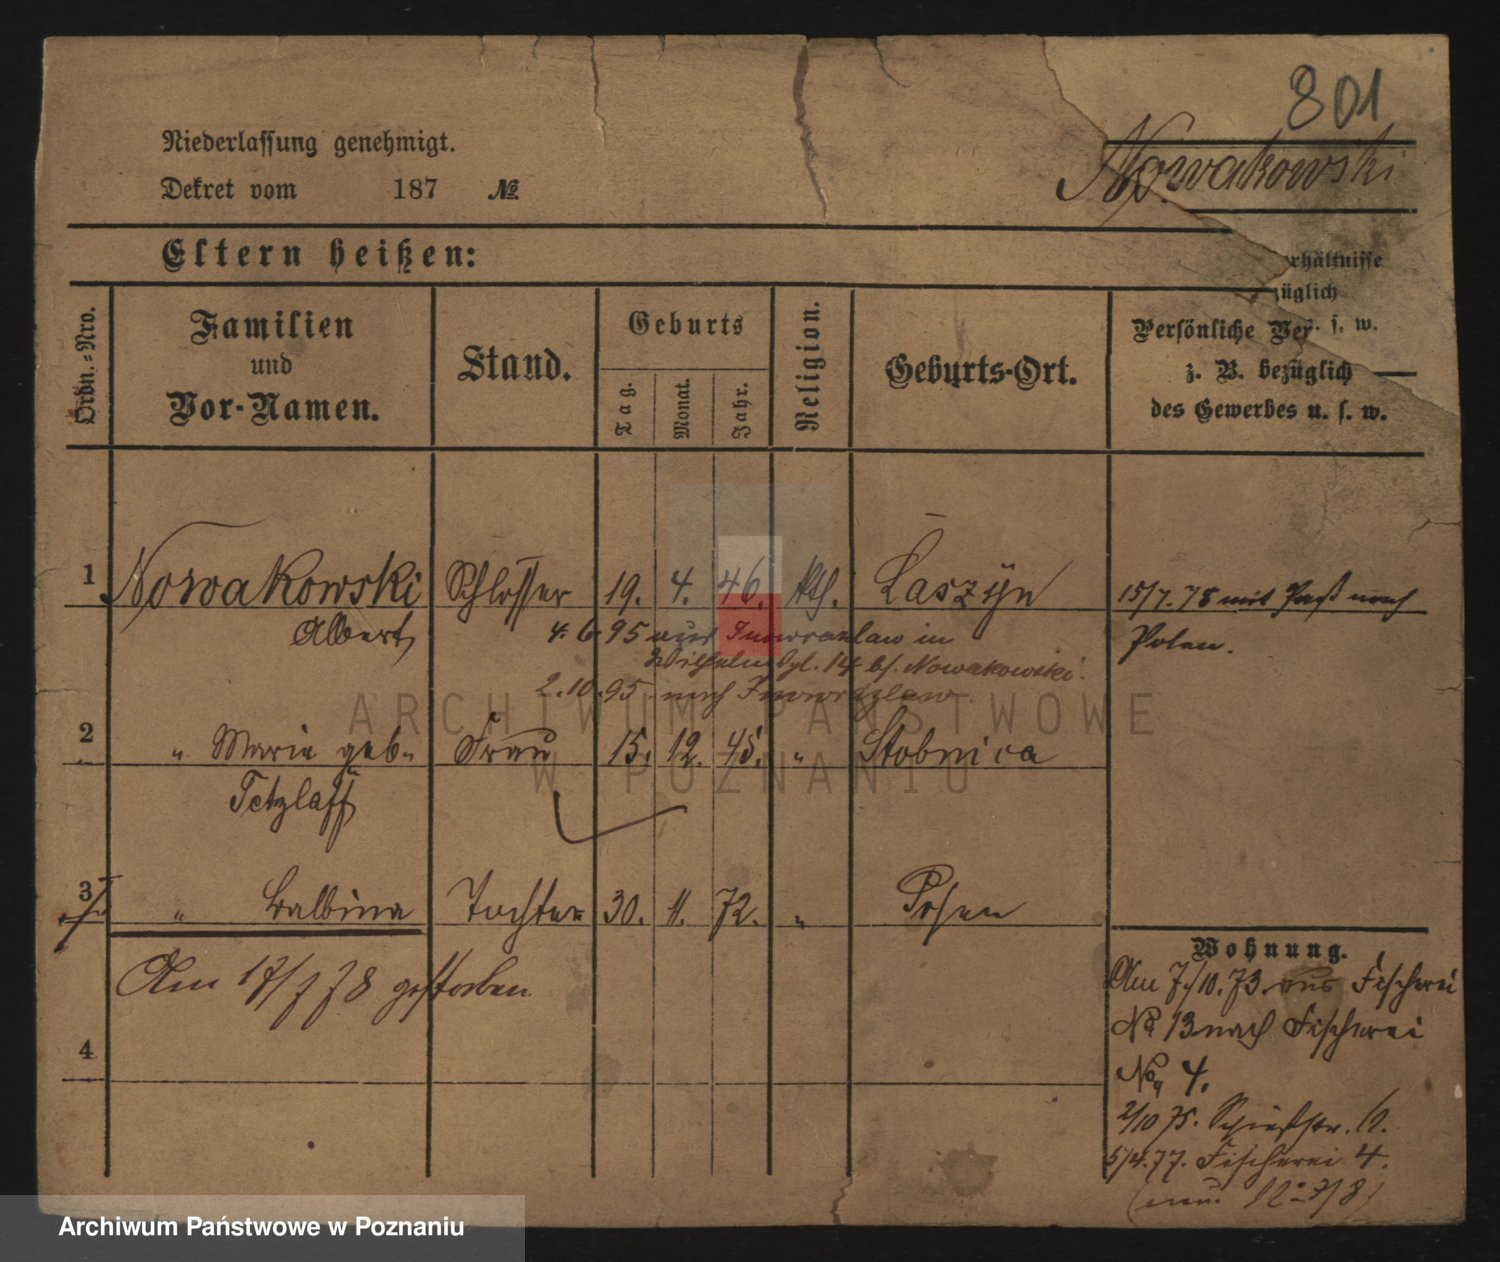 801
Niederlassung genehmigt.
Dekret vom 187 №
Nowakowski
Eltern heißen:
rhältnisse
züglich
s. w.
Ordn.-Nro.
Familien
und
Vor-Namen.
Stand.
Geburts
Tag.
Monat.
Jahr.
Religion.
Geburts-Ort.
Persönliche Ver
z. B. bezüglich
des Gewerbes u. s. w.
1 Nowakowski Schlosser 19. 4. 46. kth. Łaszyn 15/7. 78 mit Paß nach
Albert Polen.
4. 6. 95 aus Inowrazlaw in
14 bei Nowakowski.
2. 10. 95 nach Inowrazlaw.
2 " Marie geb. Frau 15. 12. 45. " Stobnica
Tetzlaff
3 " Balbina Tochter 30. 11. 72. " Posen
Am 17/7 78 gestorben.
4
Wohnung.
Am 7/10. 73 aus Fischerei
No 13 nach Fischerei
No 4.
2/10 75.
5/4. 77. Fischerei 4.
ARCHIWUM PAŃSTWOWE
W POZNANIU
Archiwum Państwowe w Poznaniu